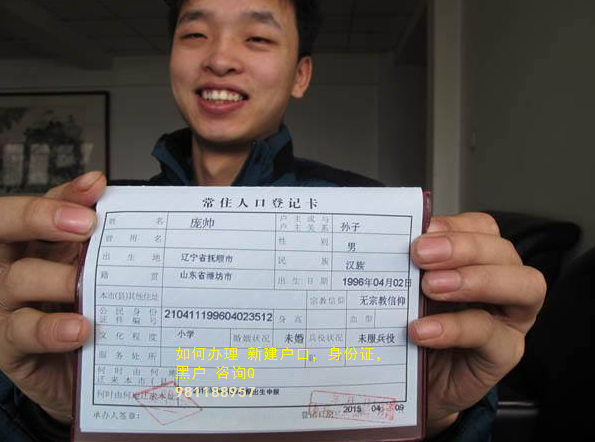 常住人口登记卡
姓 名 庞帅 户主或与户主关系 孙子
曾用名 性别 男
出生地 辽宁省抚顺市 民族 汉族
籍贯 山东省潍坊市 出生日期 1996年04月02日
本市(县)其他住址 宗教信仰 无宗教信仰
公民身份证件编号 210411199604023512 身高 血型
文化程度 小学 婚姻状况 未婚 兵役状况 未服兵役
服务处所
如何办理 新建户口, 身份证,
黑户 咨询Q
981188957
何时由何地迁来本市(县)
何时由何地迁来本址 出生申报
承办人签章: 登记日期: 2015 04 09